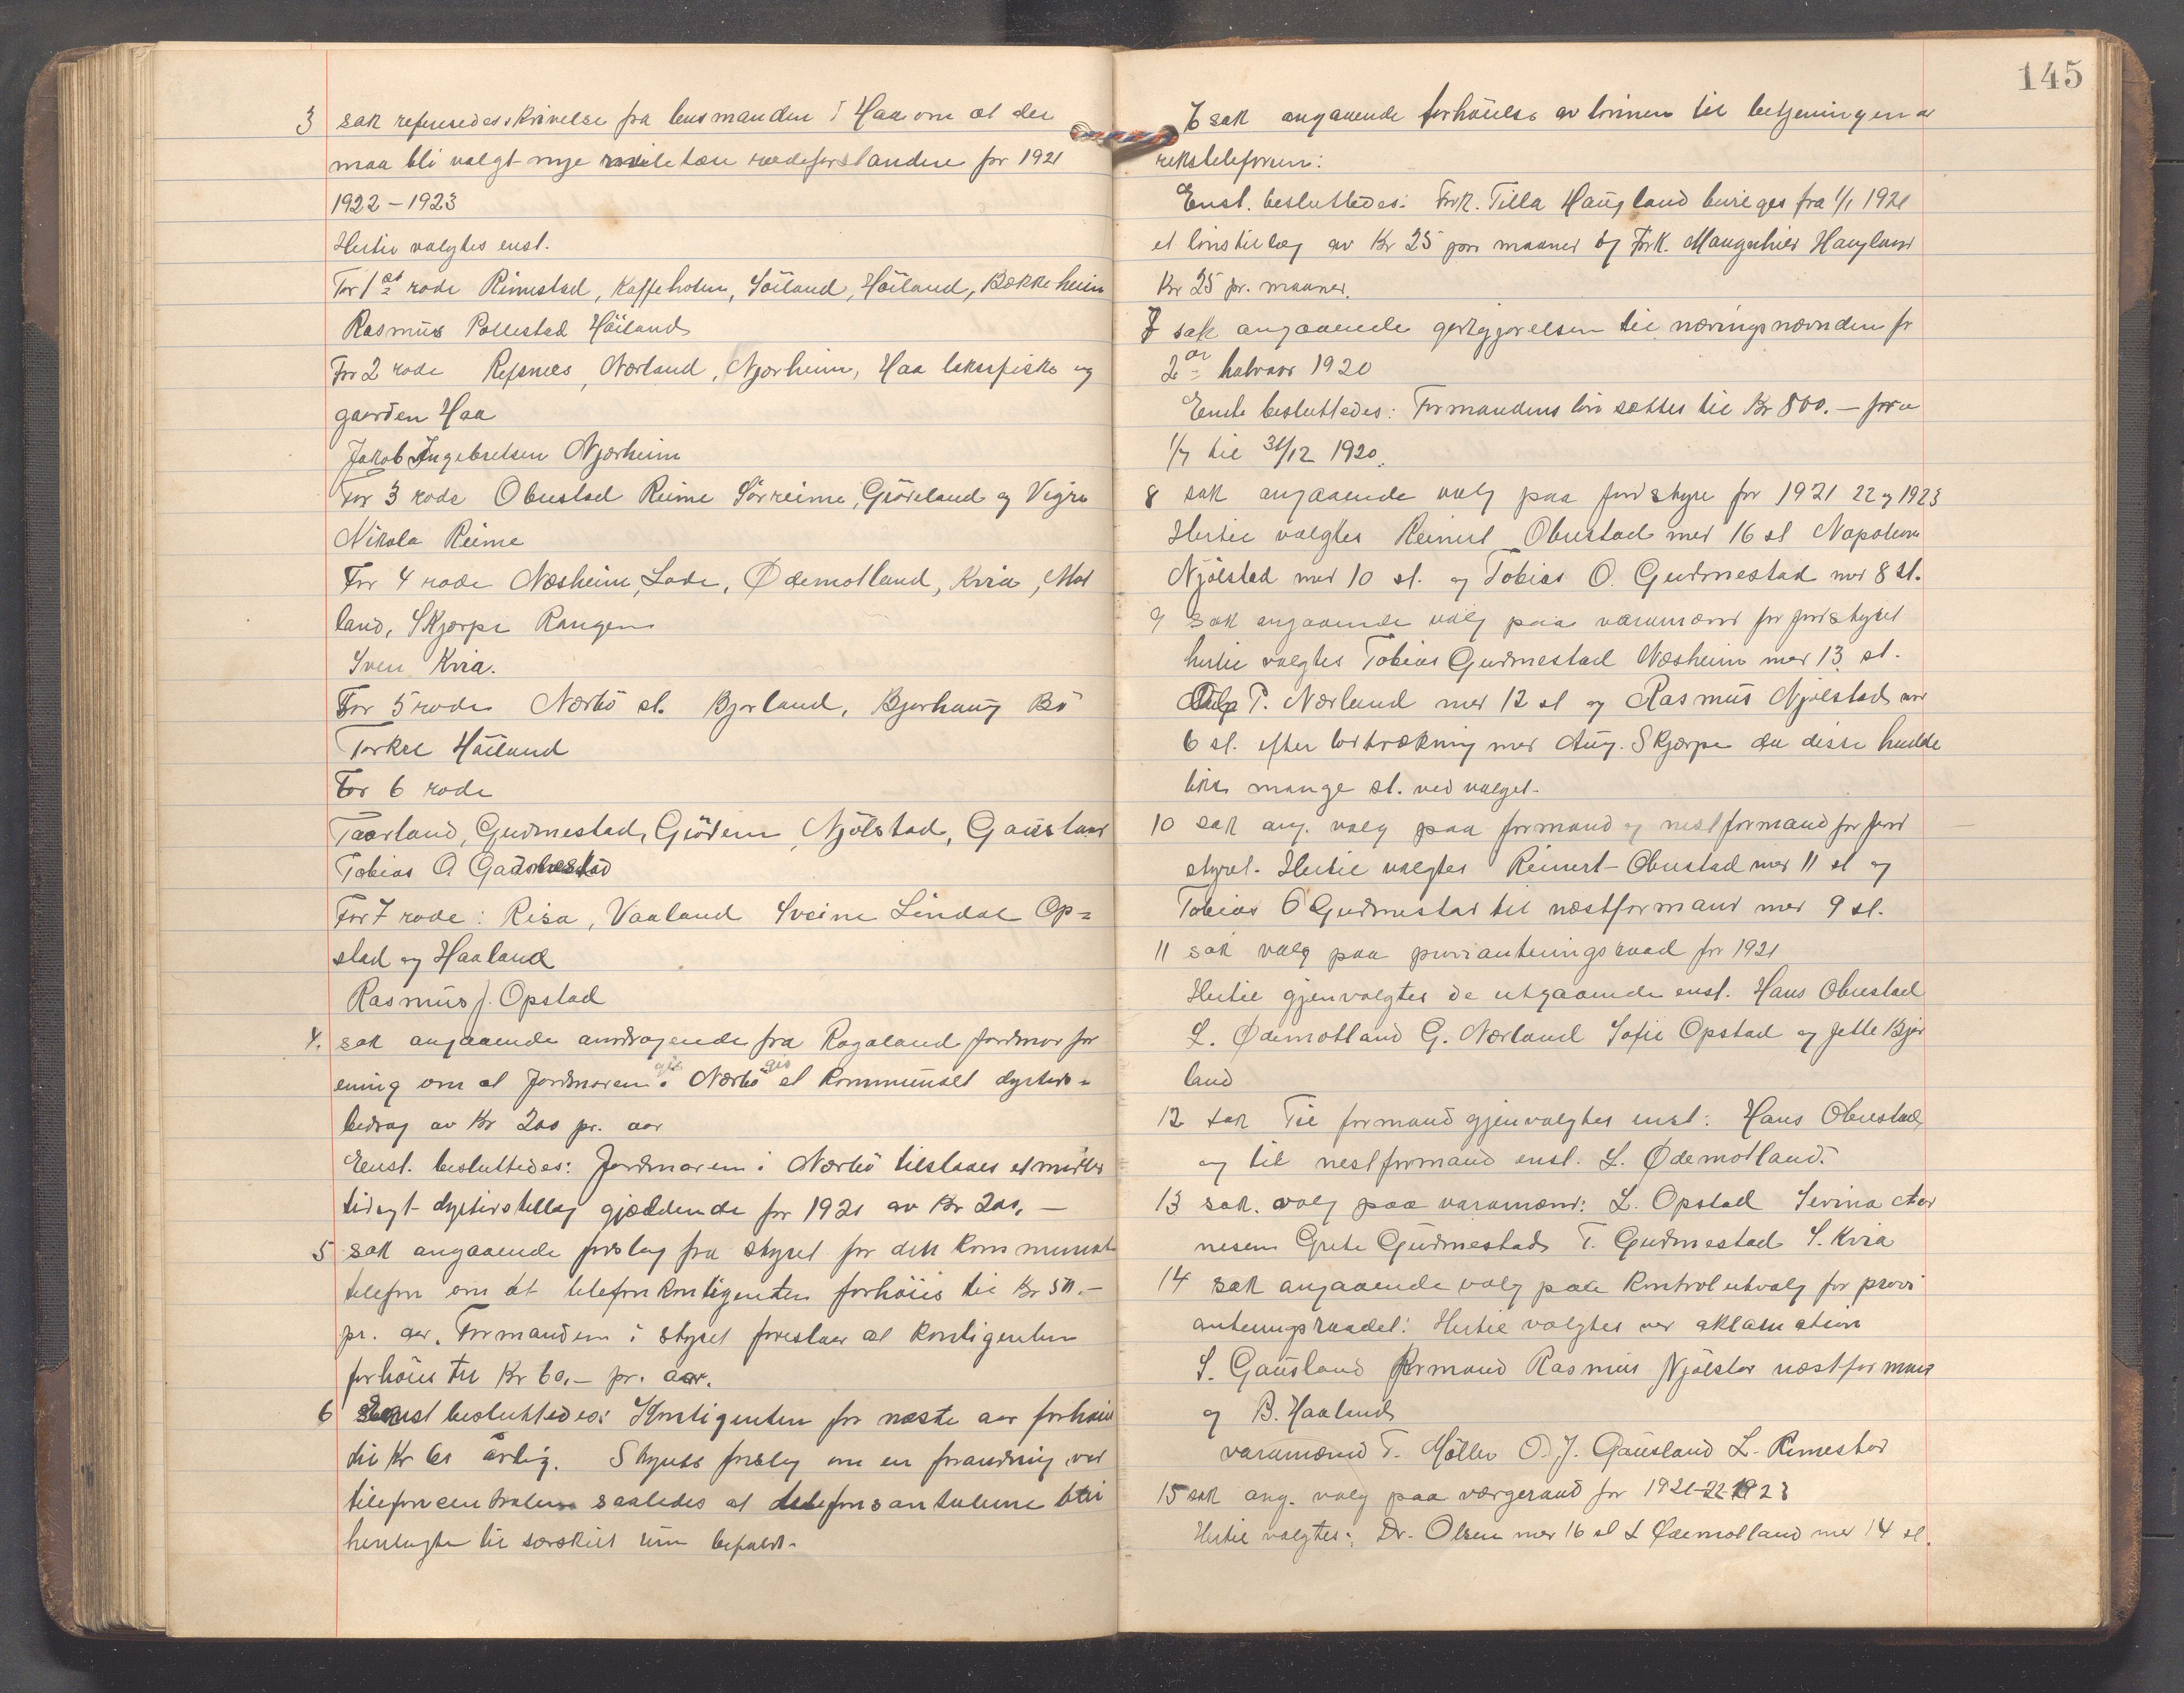 3 sak referedes skrivelse fra lensmanden i Haa om at der
maa bli valgt nye miletære rodeforstandere for 1921
1922 - 1923
Hertil valgtes enst.
For 1ste rode Rimestad, Kaffeholen, Söiland, Höiland, Bækkeheim
Rasmus Pollestad Höiland
For 2 rode Refsnes, Nærland, Njærheim, Haa laksefiske og
gaarden Haa
Jakob Ingebretsen Njærheim
For 3 rode Obrestad Reime Sörreime, Gröteland og Vigre
Nikola Reime
For 4 rode Næsheim, Lode, Ødemotland, Kvia, Mot
land, Skjærpe Rangen
Sven Kvia.
For 5 rode Nærbö st. Bjorland, Bjorhaug Bö
Torkel Höiland
For 6 rode
Taarland, Gudmestad, Grödem, Njölstad, Gausland
Tobias O Gudmestad
For 7 rode: Risa, Vaaland Sveine Lindal Op=
stad og Haaland
Rasmus J. Opstad
4. sak angaaende andragende fra Rogaland Jordmor for
ening om at Jordmoren i Nærbö gis et kommunalt dyrtids=
bidrag av Kr 200 pr. aar
Enst. besluttedes: Jordmoren i Nærbö tilstaaes et midler
tidigt dyrtidstillæg gjældende for 1921 av Kr 200,-
5 sak angaaende forslag fra styret for den kommunale
telefon om at telefonkontigenten forhöies til Kr 50.-
pr. aar. Formanden i styret foreslaar at kontigenten
forhöies til Kr 60.- pr. aar.
6 Enst besluttedes: Kontigenten for næste aar forhöies
til Kr 60 årlig. Styrets forslag om en forandring ved
telefoncentralen saaledes at telefonsantalene blir
henlagte til særskilt rum bifaldt.
145
6 sak angaaende forhöielse av lönnen til betjeningen av
rikstelefonen:
Enst. besluttedes: Frk. Tilla Haugland bevilges fra 1/1 1921
et lönstillæg av Kr 25 pr. maaned og Frk. Mangnhild Haugland
Kr 25 pr. maaned.
7 sak angaaende godtgjörelsen til næringsnævnden for
2det halvaar 1920
Enst. besluttedes: Formandens lön sættes til Kr 800.- fra
1/7 til 31/12 1920.
8 sak angaaende valg paa jordstyre for 1921 22 og 1923
Hertil valgtes Reinert Obrestad med 16 st Napoleon
Njölstad med 10 st. og Tobias O. Gudmestad med 8 st.
9 sak angaaende valg paa varamænd for jordstyret
hertil valgtes Tobias Gudmestad Næsheim med 13 st.
P. Nærland med 12 st og Rasmus Njölstad med
6 st. efter lodtrækning med Aug. Skjærpe da disse hadde
like mange st. ved valget.
10 sak ang. valg paa formand og nestformand for jord
styret. Hertil valgtes Reinert Obrestad med 11 st og
Tobias O Gudmestad til næstformand med 9 st.
11 sak valg paa provianteringsraad for 1921
Hertil gjenvalgtes de utgaaende enst. Hans Obrestad
L. Ødemotland G. Nærland Sofie Opstad og Jette Bjor
land
12 sak Til formand gjenvalgtes enst: Hans Obrestad
og til nestformand enst. L. Ødemotland.
13 sak. valg paa varamænd: L. Opstad Serina Aar
nesen Grete Gudmestad T. Gudmestad S. Kvia
14 sak angaaende valg paa kontrolutvalg for provi
anteringsraadet: Hertil valgtes ved aklamation
S. Gausland formand Rasmus Njölstad næstformand
og B. Haaland
varamænd T. Möller O. J. Gausland L. Rimestad
15 sak ang. valg paa værgeraad for 1921-22-1923
Hertil valgtes: Dr. Olsen med 16 st L Ødemotland med 14 st.